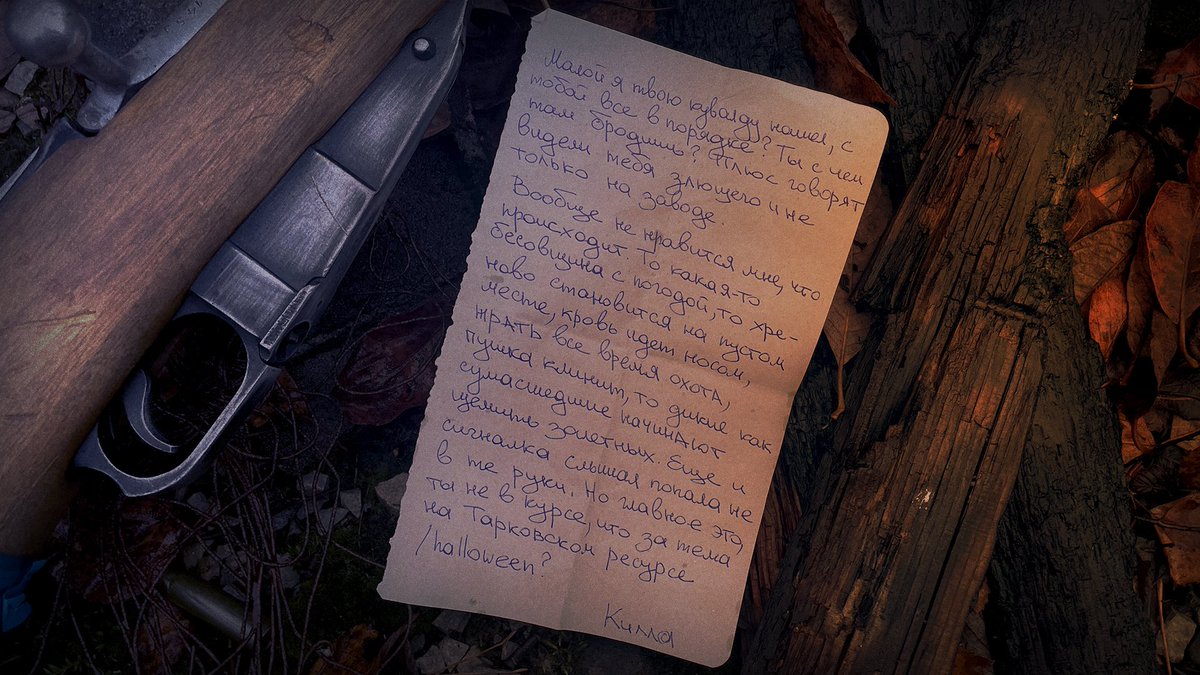 Малой я твою кувалду нашел, с
тобой все в порядке? Ты с чем
там бродишь? Плюс говорят
видели тебя злющего и не
только на заводе.
Вообще не нравится мне, что
происходит. То какая-то
бесовщина с погодой, то хре-
ново становится на пустом
месте, кровь идет носом,
жрать все время охота,
пушка клинит, то дикие как
сумасшедшие начинают
щемить залетных. Еще и
сигналка слышал попала не
в те руки. Но главное это,
ты не в курсе, что за тема
на Тарковском ресурсе
/halloween?
Килла